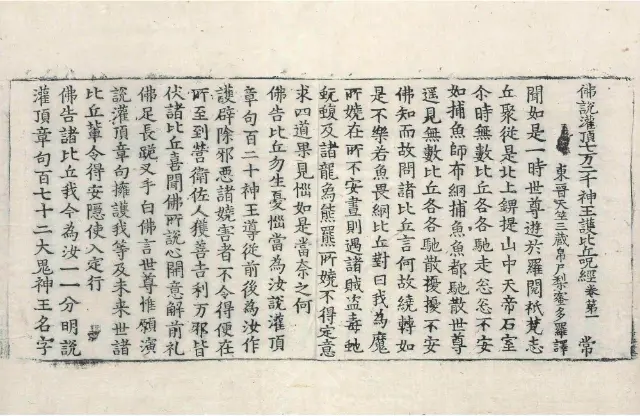 佛說灌頂七万二千神王護比丘呪經卷第一 常
東晉天竺三藏帛尸梨蜜多羅譯
聞如是一時世尊遊於羅閱祇梵志
丘聚從是北上錍提山中天帝石室
尒時無數比丘各各馳走忩忩不安
如捕魚師布網捕魚魚都馳散世尊
遥見無數比丘各各馳散擾擾不安
佛知而故問諸比丘言何故繞轉如
是不樂若魚畏網比丘對曰我為魔
所嬈在所不安晝則遇諸賊盗毒虵
蚖蝮及諸龍為熊羆所嬈不得定意
求四道果見惱如是當奈之何
佛告比丘勿生憂惱當為汝說灌頂
章句百二十神王導從前後為汝作
護辟除邪惡諸嬈害者不令得便在
所至到營衛佐人獲善吉利万邪皆
伏諸比丘喜聞佛所說心開意解前礼
佛足長跪叉手白佛言世尊惟願演
說灌頂章句擁護我等及未來世諸
比丘輩令得安隱使入定行
佛告諸比丘我今為汝一一分明說
灌頂章句百七十二大鬼神王名字